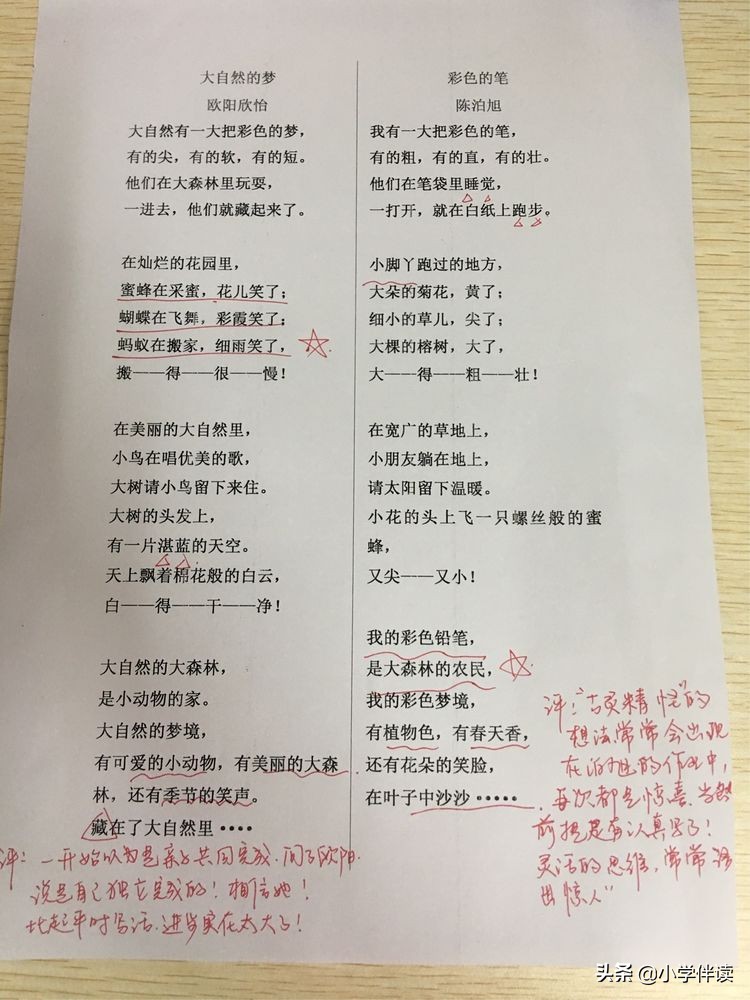 大自然的梦
欧阳欣怡
大自然有一大把彩色的梦，
有的尖，有的软，有的短。
他们在大森林里玩耍，
一进去，他们就藏起来了。
在灿烂的花园里，
蜜蜂在采蜜，花儿笑了；
蝴蝶在飞舞，彩霞笑了；
蚂蚁在搬家，细雨笑了，
搬——得——很——慢！
在美丽的大自然里，
小鸟在唱优美的歌，
大树请小鸟留下来住。
大树的头发上，
有一片湛蓝的天空。
天上飘着棉花般的白云，
白——得——干——净！
大自然的大森林，
是小动物的家。
大自然的梦境，
有可爱的小动物，有美丽的大森
林，还有季节的笑声。
藏在了大自然里····
评：一开始以为是亲子共同完成，问了欧阳
说是自己独立完成的！相信她！
比起平时写话，进步实在太大了！
彩色的笔
陈泊旭
我有一大把彩色的笔，
有的粗，有的直，有的壮。
他们在笔袋里睡觉，
一打开，就在白纸上跑步。
小脚丫跑过的地方，
大朵的菊花，黄了；
细小的草儿，尖了；
大棵的榕树，大了，
大——得——粗——壮！
在宽广的草地上，
小朋友躺在地上，
请太阳留下温暖。
小花的头上飞一只螺丝般的蜜
蜂，
又尖——又小！
我的彩色铅笔，
是大森林的农民，
我的彩色梦境，
有植物色，有春天香，
还有花朵的笑脸，
在叶子中沙沙·····
评：“古灵精怪”的
想法常常会出现
在泊旭的作业中，
每次都是惊喜，当然
前提是有认真写了！
灵活的思维，常常“语
出惊人”
头条 @小学伴读